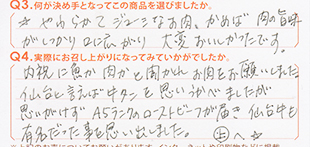 Q3.何が決め手となってこの商品を選びましたか。
☆ やわらかて ジューシーなお肉、かめば 肉の旨味
がしっかり口に広がり 大変おいしかったです。
Q4.実際にお召し上がりになってみていかがでしたか。
内祝に魚か肉かと聞かれ お肉をお願いしました。
仙台と言えば牛タンを思いうかべましたが
思いがけず A5ランクのローストビーフが届き 仙台牛も
有名だった事を思い出しました。 へ☆